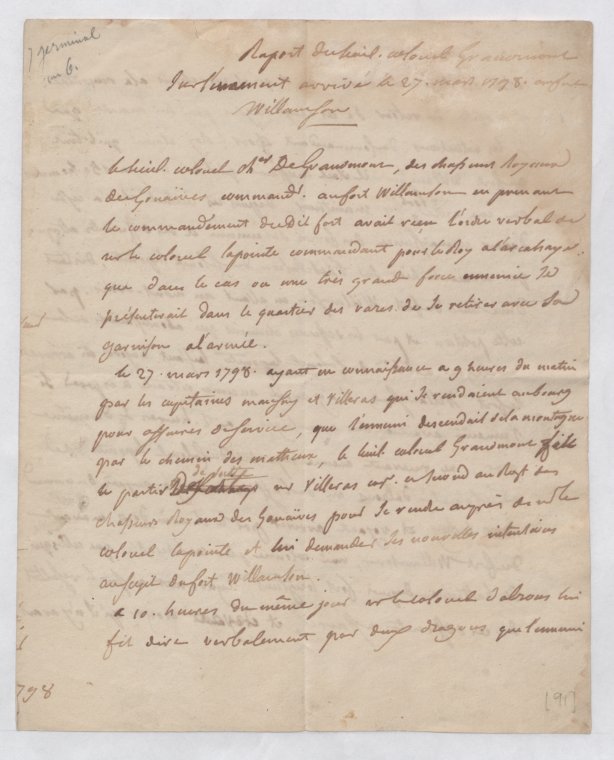 7 germinal
an 6.
Raport du lieut. colonel Gransmont
sur l'evenement arrivé le 27. mars 1798. au fort
Williamson
le lieut. colonel ch.er De Gransmont, des chasseurs Royaux
des Gonaïves command.t au fort Williamson en prenant
le commandement du Dit fort avait reçu l'ordre verbal de
mr le colonel lapointe commandant pour le Roy a l'arcahaye,
que dans le cas ou une très grande force ennemie se
présenterait dans le quartier des vases de se retirer avec sa
garnison a l'armée.
le 27. mars 1798. ayant eu connaissance a 9 heures du matin
par les capitaines et Villeras qui se rendaient au bourg
pour affaires de service, que l'ennemi descendait de la montagne
par le chemin des matheux, le lieut. colonel Gransmont fit
de suite
le partir mr Villeras cap. en second au Reg.t des
chasseurs Royaux des Gonaïves pour se rendre auprès de mr le
colonel lapointe et lui demander ses nouvelles intentions
au sujet du fort Williamson.
a 10. heures du même jour mr le colonel lui
fit dire verbalement par deux dragons que l'ennemi
798
[91]